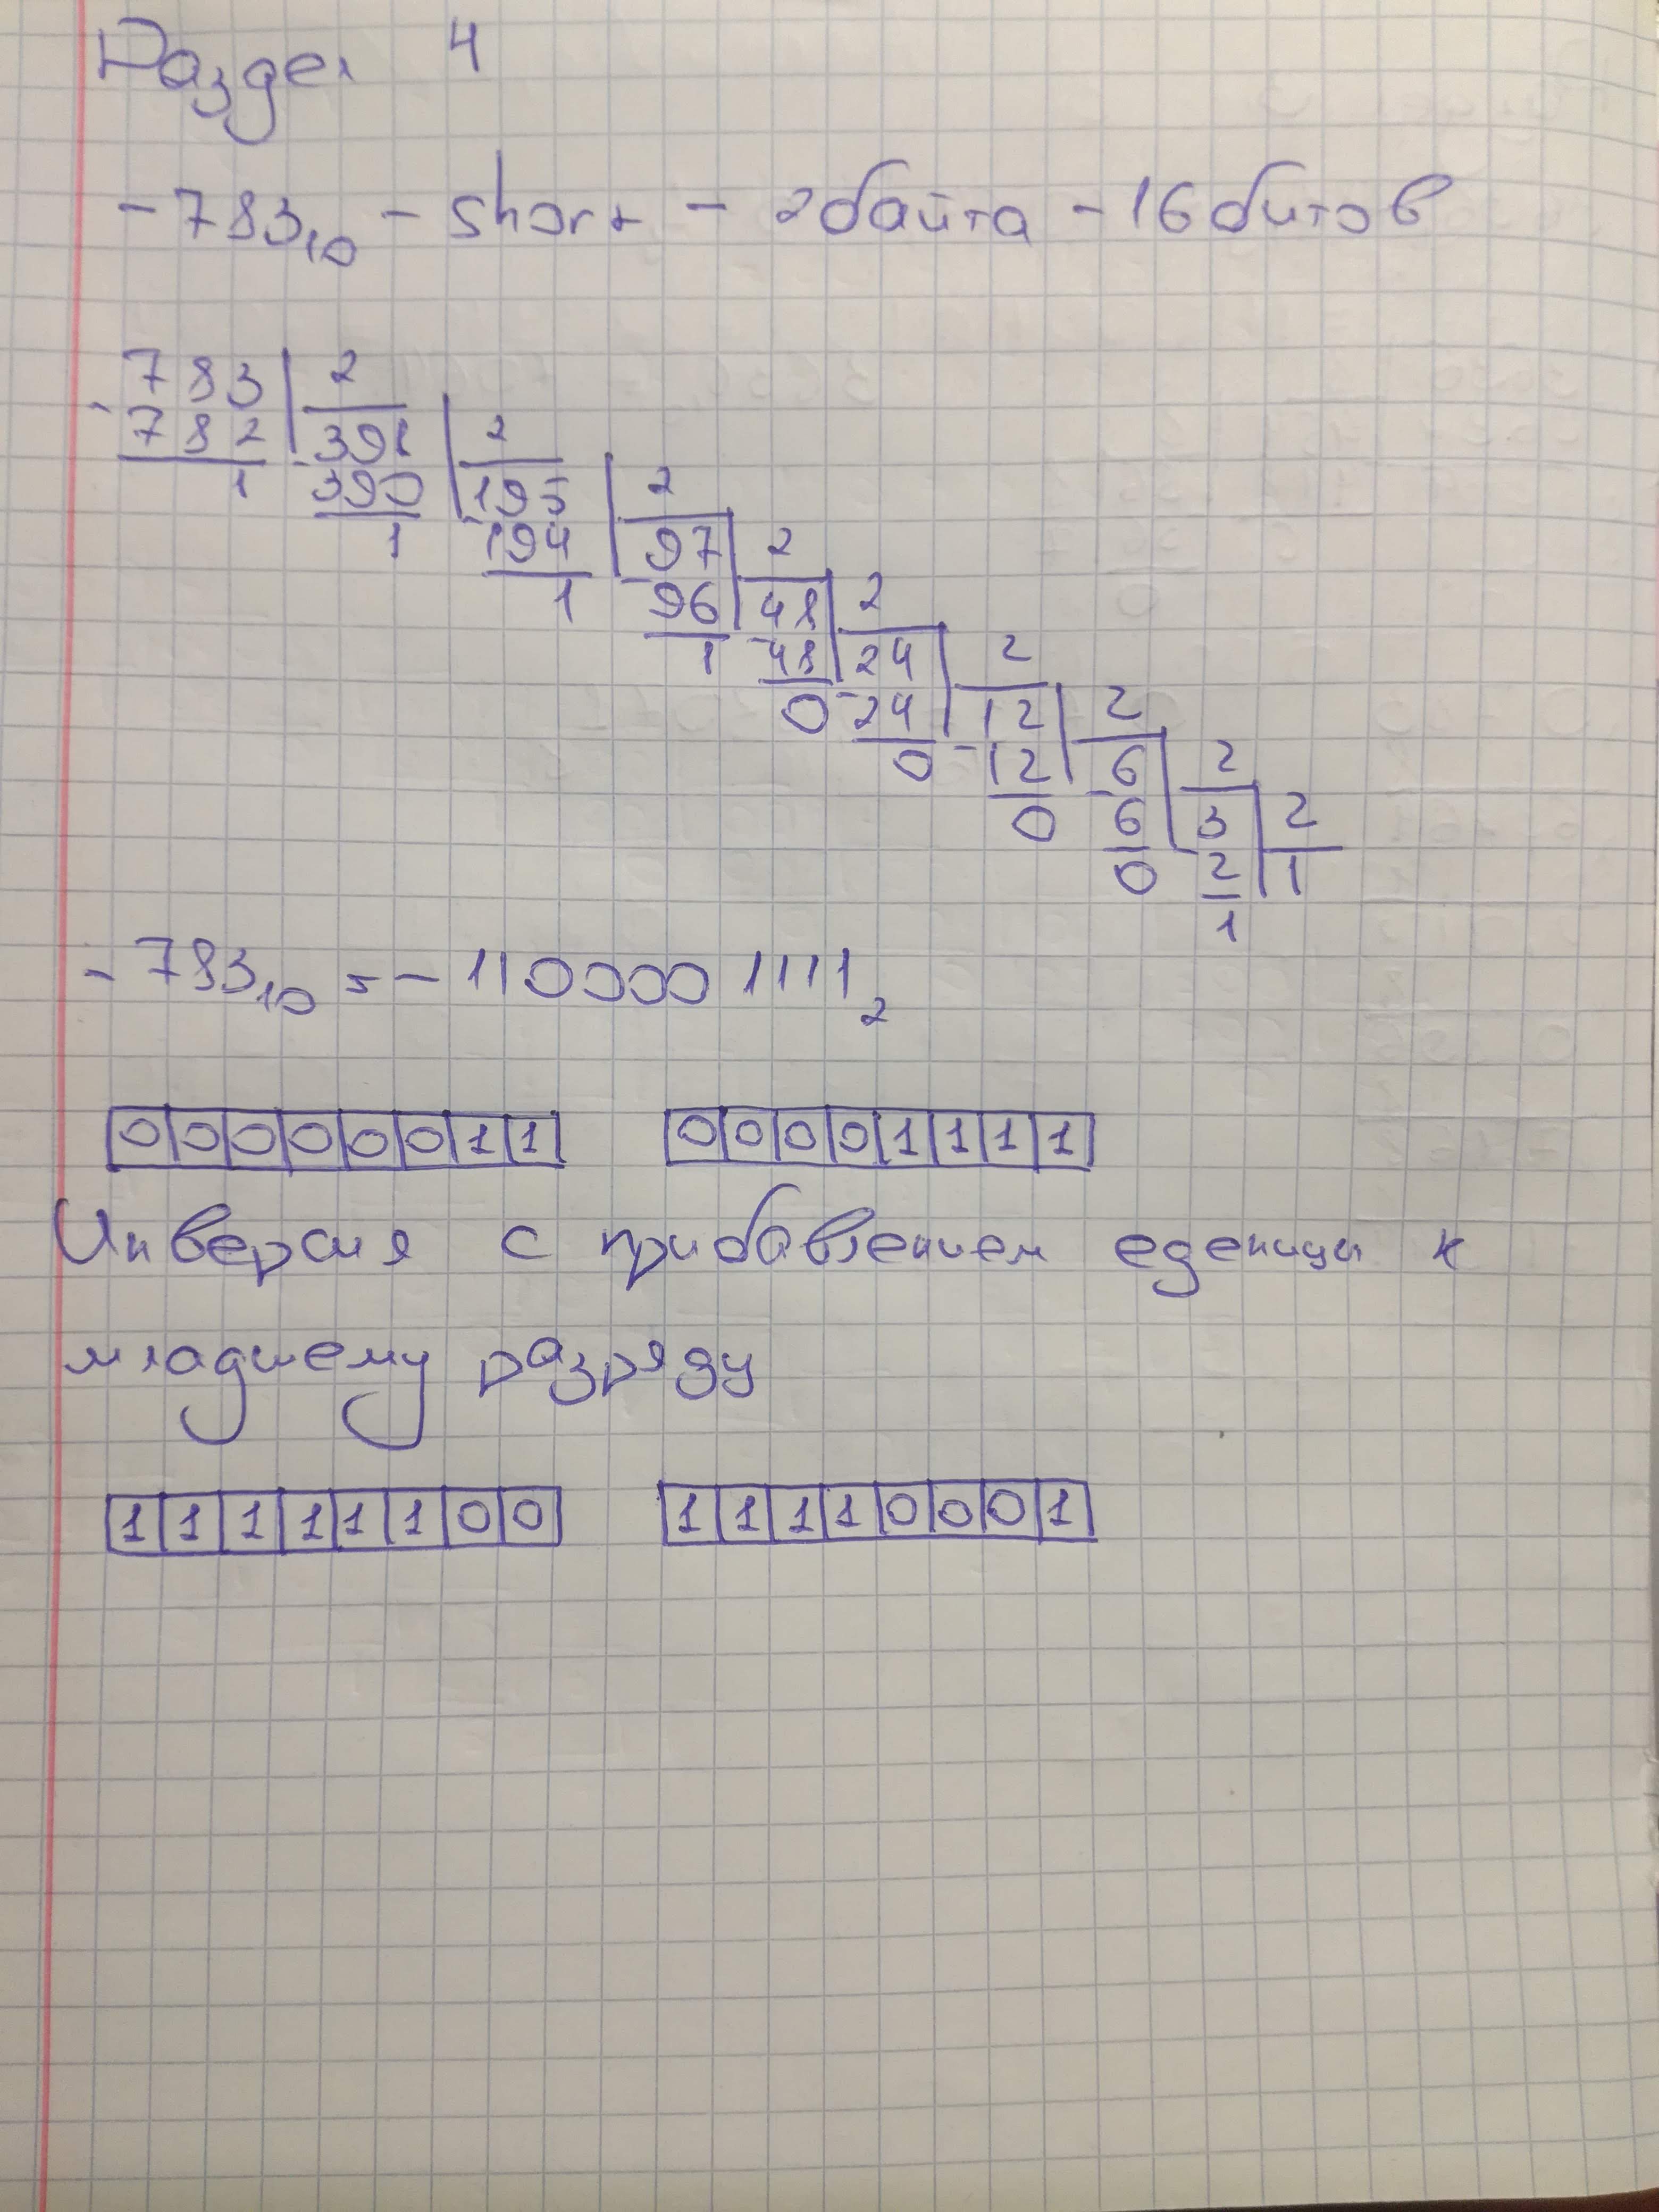 Раздел 4
-783₁₀ - short - 2 байта - 16 битов
783 | 2
-782 | 391 | 2
1 -390 | 195 | 2
1 -194 | 97 | 2
1 -96 | 48 | 2
1 -48 | 24 | 2
0 -24 | 12 | 2
0 -12 | 6 | 2
0 -6 | 3 | 2
0 -2 | 1
1
-783₁₀ = -1100001111₂
0 0 0 0 0 0 1 1 0 0 0 0 1 1 1 1
Инверсия с прибавлением еденицы к
младшему разряду
1 1 1 1 1 1 0 0 1 1 1 1 0 0 0 1